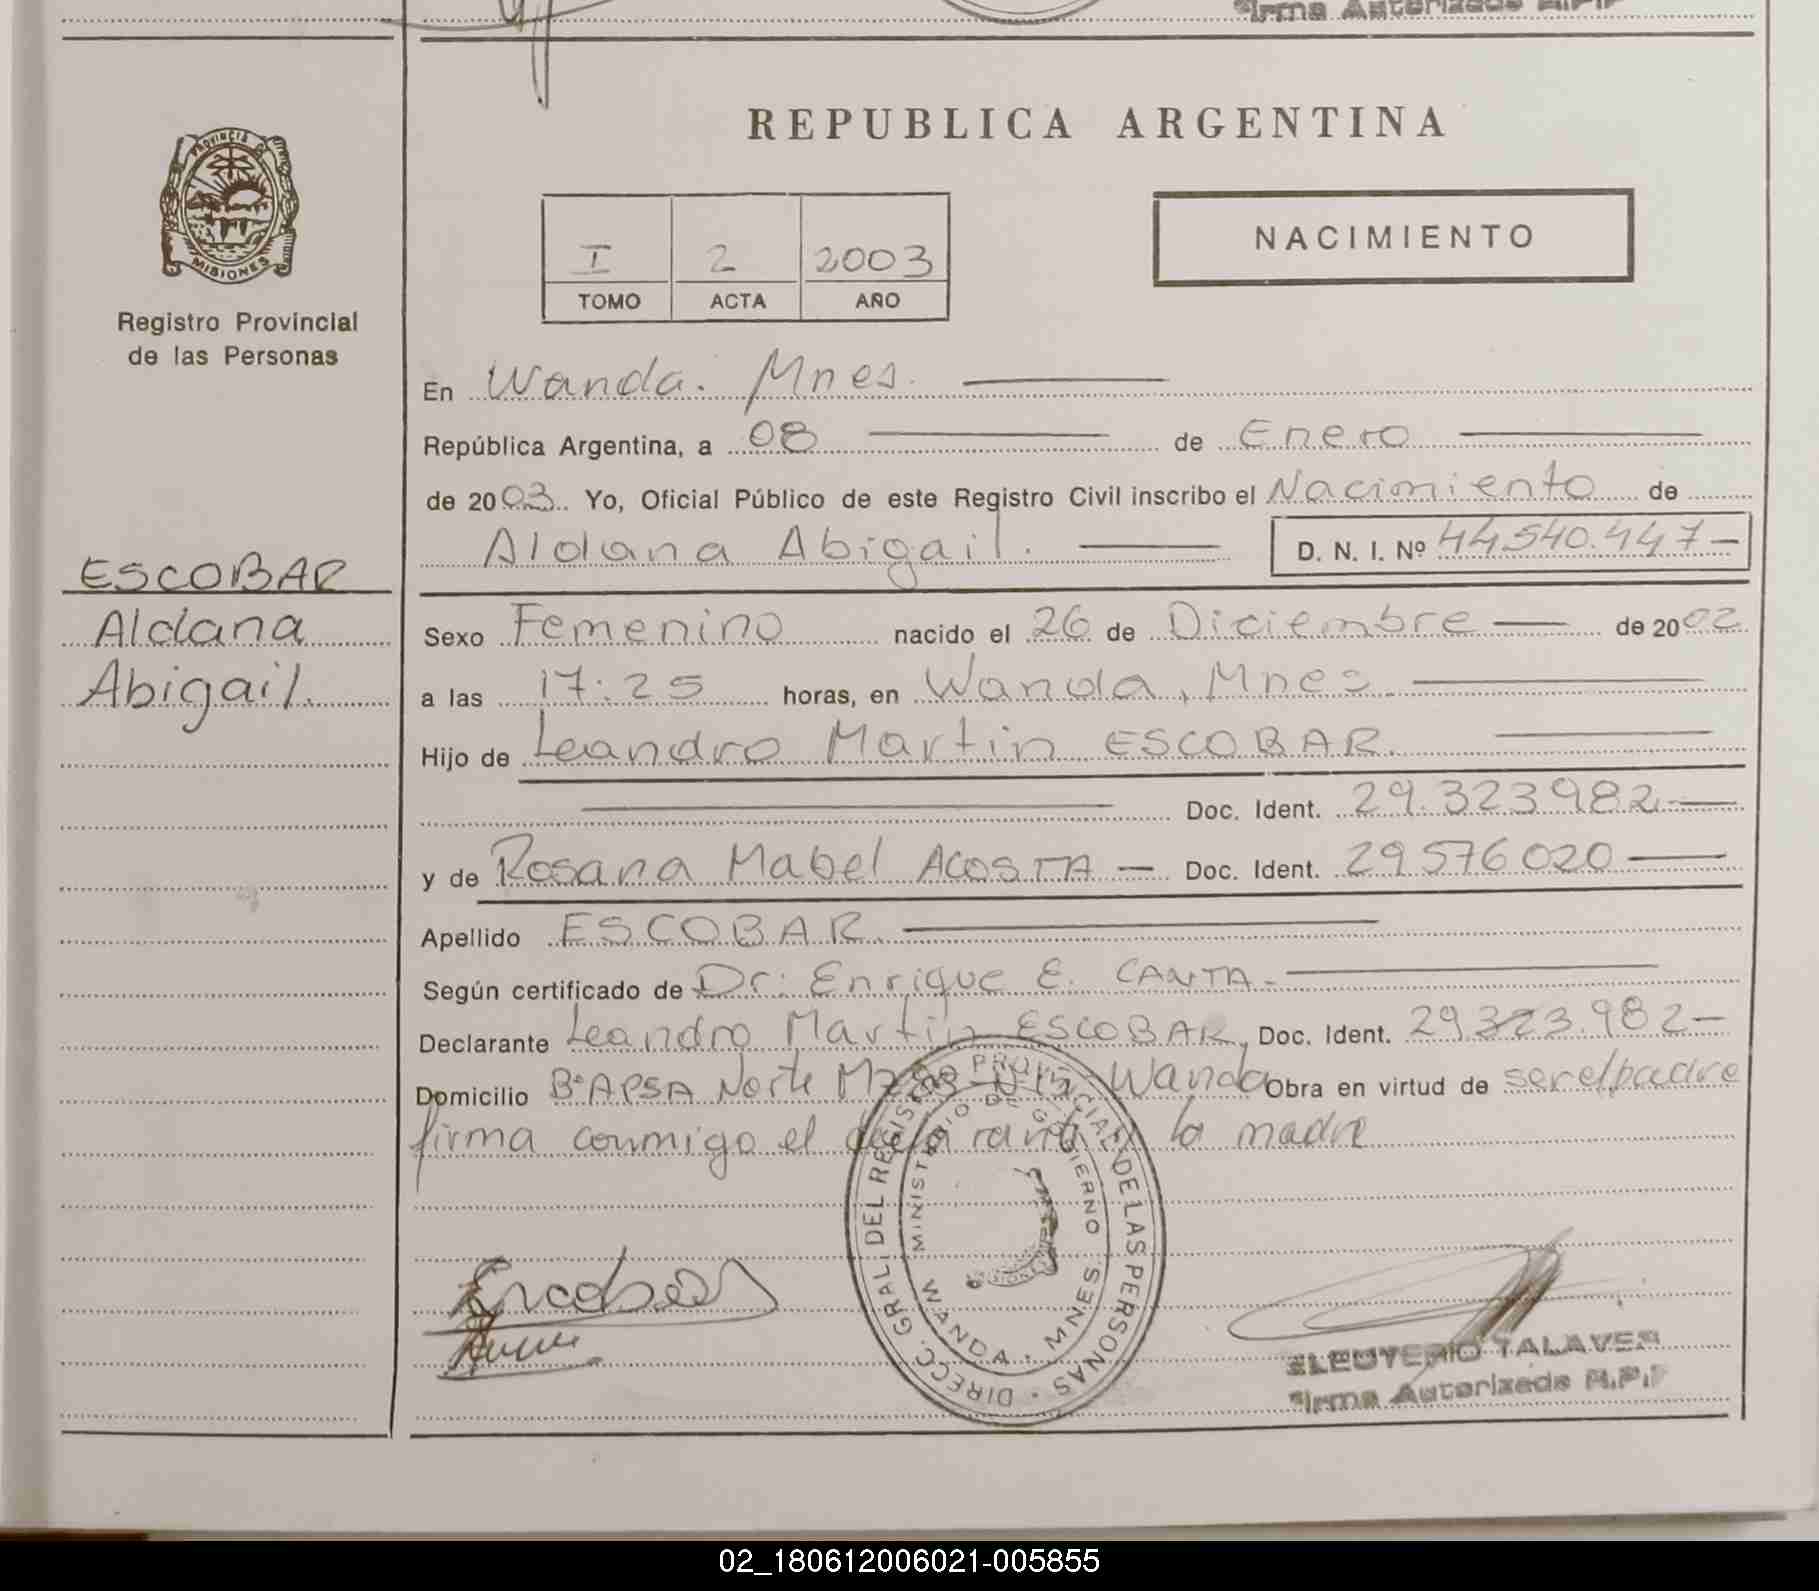 Firma Autorizada R.P.P
REPUBLICA ARGENTINA
PROVINCIA DE
MISIONES
Registro Provincial
de las Personas
I 2 2003
TOMO ACTA AÑO
NACIMIENTO
En Wanda. Mnes.
República Argentina, a 08 de Enero
de 2003. Yo, Oficial Público de este Registro Civil inscribo el Nacimiento de
Aldana Abigail. D. N. I. Nº 44.540.447
ESCOBAR
Aldana
Abigail.
Sexo Femenino nacido el 26 de Diciembre de 2002
a las 17:25 horas, en Wanda, Mnes
Hijo de Leandro Martin ESCOBAR.
Doc. Ident. 29.323.982
y de Rosana Mabel ACOSTA Doc. Ident. 29.576.020
Apellido ESCOBAR.
Según certificado de Dr: Enrique E. CANTA.
Declarante Leandro Martin ESCOBAR, Doc. Ident. 29.323.982
Domicilio Bº APSA Norte Wanda Obra en virtud de ser el padre
firma conmigo el declarante y la madre
DIRECC. GRAL. DEL REGISTRO PROVINCIAL DE LAS PERSONAS
MINISTERIO DE GOBIERNO
WANDA - MNES.
Escobar
ELEUTERIO TALAVER
Firma Autorizada R.P.P
02_180612006021-005855